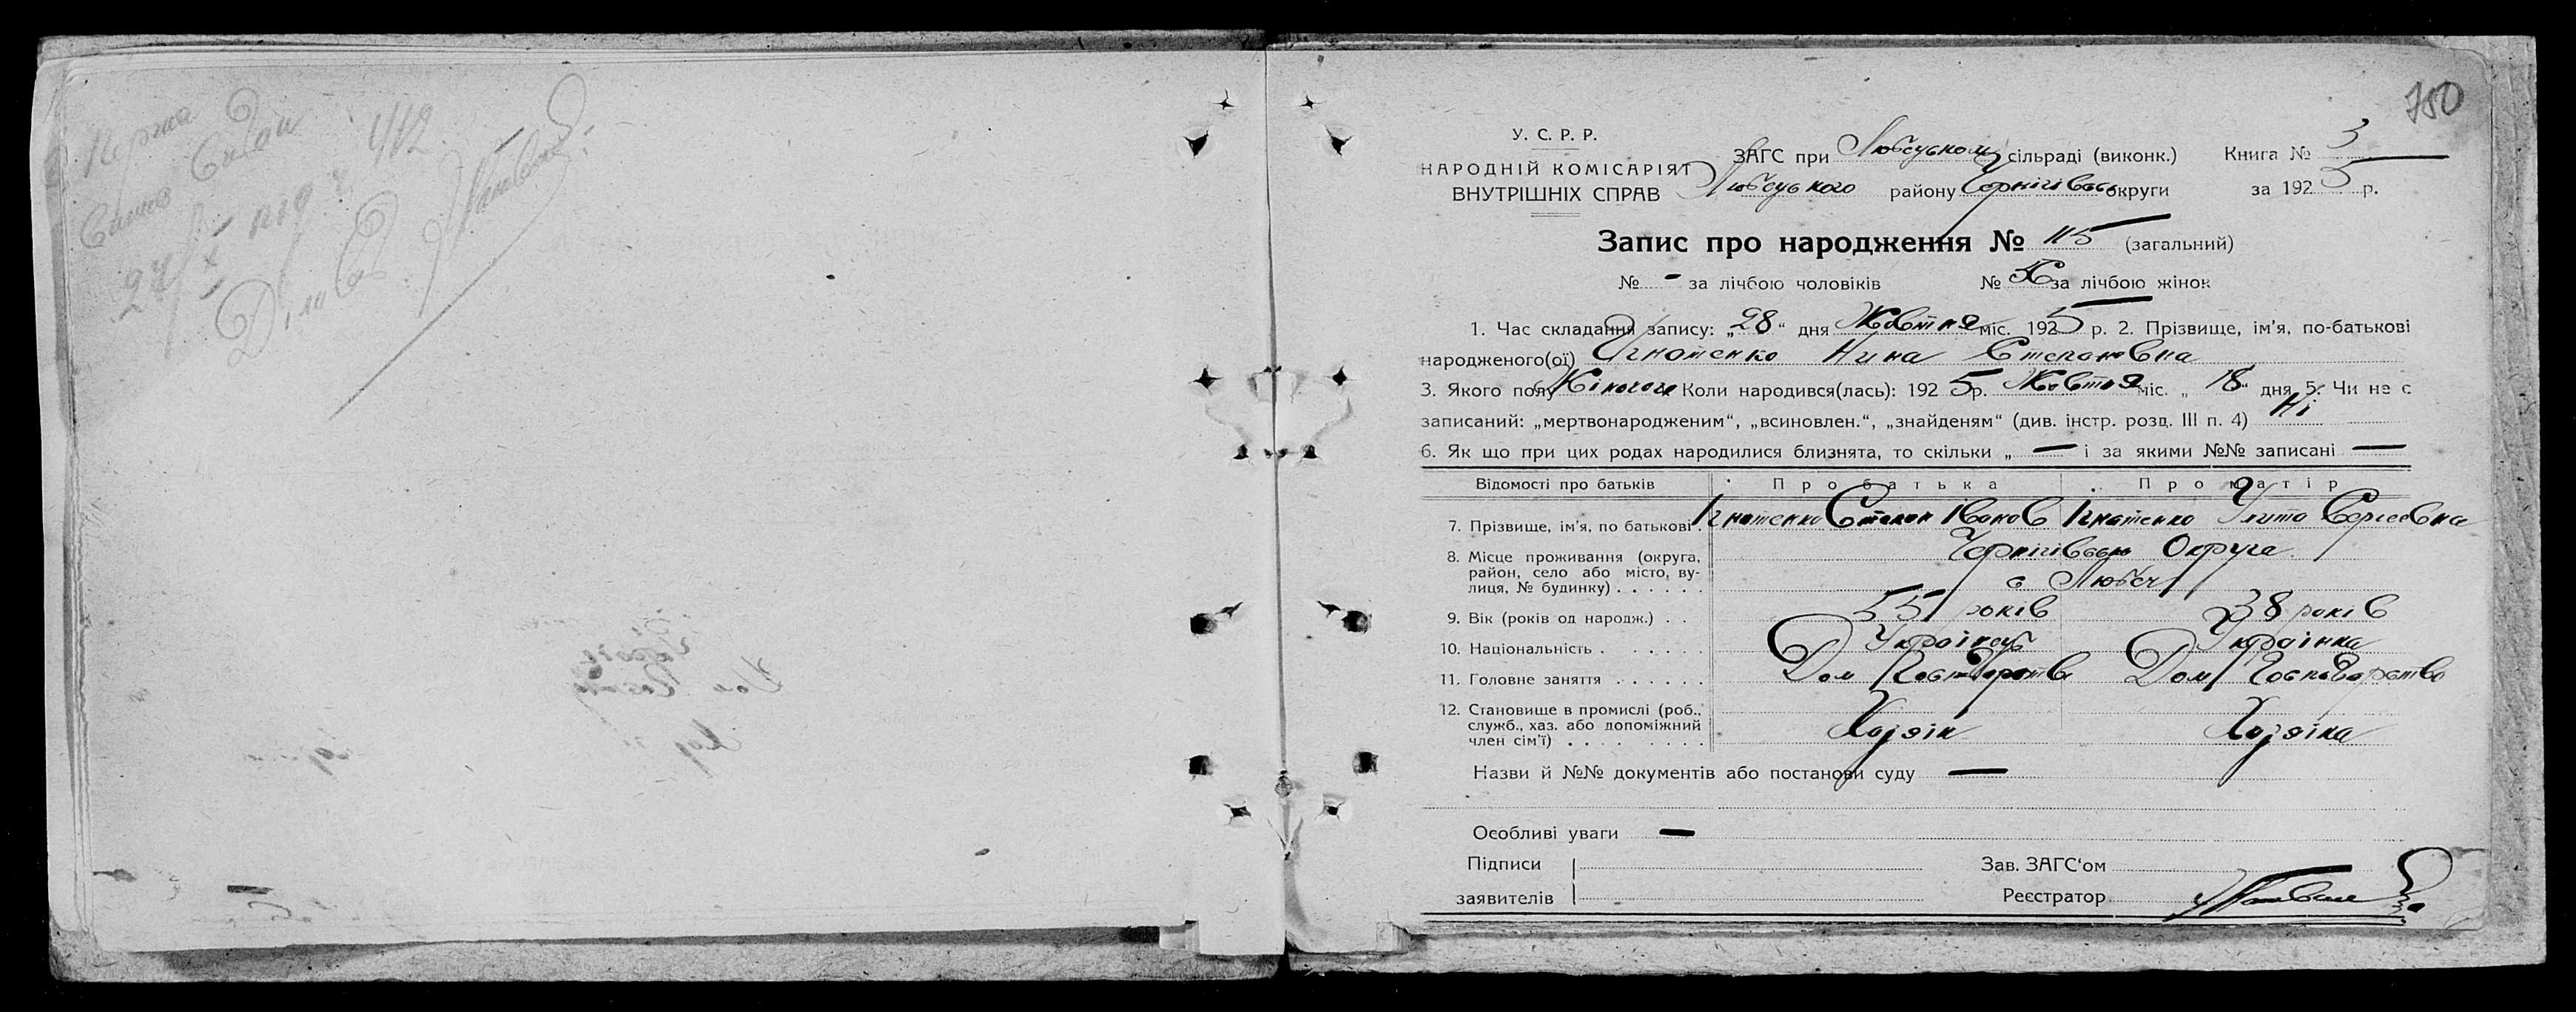 412
750
У. С. Р. Р.
НАРОДНІЙ КОМІСАРІЯТ
ВНУТРІШНІХ СПРАВ
ЗАГС при Любецьком сільраді (виконк.) Книга № 3
Любецького району Чернігівськ округи за 1925 р.
Запис про народження № 115 (загальний)
№ - за лічбою чоловіків № за лічбою жінок
1. Час складання запису: „28“ дня Жовтня міс. 1925 р. 2. Прізвище, ім'я, по-батькові
народженого(ої) Игнатенко Нина Степановна
3. Якого полу Жіночого Коли народився(лась): 1925 р. Жовтня міс. „18“ дня 5. Чи не є
записаний: „мертвонародженим“, „всиновлен.“, „знайденям“ (див. інстр. розд. III п. 4) Ні
6. Як що при цих родах народилися близнята, то скільки „ — і за якими №№ записані —
Відомості про батьків Про батька Про матір
7. Прізвище, ім'я, по батькові. Ігнатенко Степан Іванов Ігнатенко Улита Сергеевна
8. Місце проживання (округа, район, село або місто, вулиця, № будинку) Чернігівська Округа
с Любеч
9. Вік (років од народж.) 55 років 38 років
10. Національність Українець Українка
11. Головне заняття Дом Господарств Дом Господарство
12. Становище в промислі (роб., служб., хаз. або допоміжний член сім'ї) Хазяін Хазяіка
Назви й №№ документів або постанови суду —
Особливі уваги —
Підписи Зав. ЗАГС'ом
заявителів Реєстратор